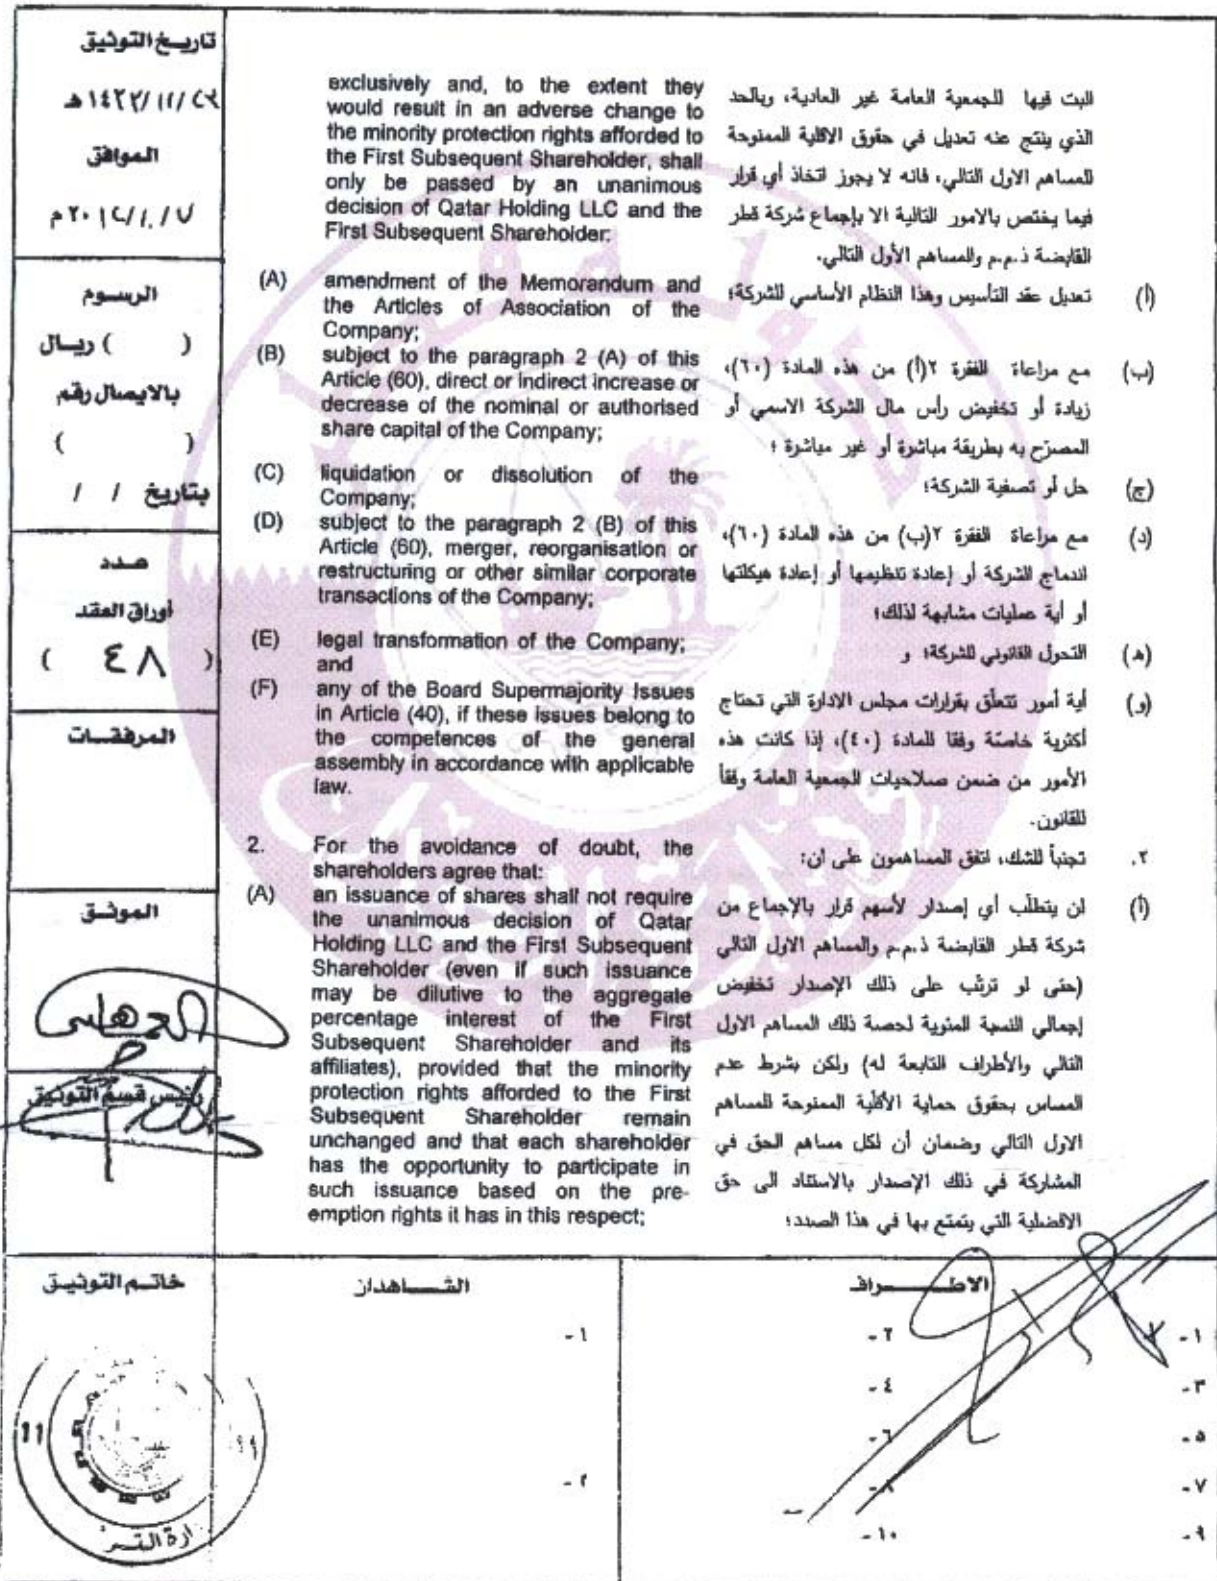 تاريخ التوثيق
١٤٣٣/١١/٢١ هـ
الموافق
٢٠١٢/١٠/٧ م
الرسوم
( ) ريال
بالايصال رقم
( )
بتاريخ / /
عدد
أوراق العقد
( ٤٨ )
المرفقات
الموثق
رئيس قسم التوثيق
exclusively and, to the extent they
would result in an adverse change to
the minority protection rights afforded to
the First Subsequent Shareholder, shall
only be passed by an unanimous
decision of Qatar Holding LLC and the
First Subsequent Shareholder:
(A) amendment of the Memorandum and
the Articles of Association of the
Company;
(B) subject to the paragraph 2 (A) of this
Article (60), direct or indirect increase or
decrease of the nominal or authorised
share capital of the Company;
(C) liquidation or dissolution of the
Company;
(D) subject to the paragraph 2 (B) of this
Article (60), merger, reorganisation or
restructuring or other similar corporate
transactions of the Company;
(E) legal transformation of the Company;
and
(F) any of the Board Supermajority Issues
in Article (40), if these issues belong to
the competences of the general
assembly in accordance with applicable
law.
2. For the avoidance of doubt, the
shareholders agree that:
(A) an issuance of shares shall not require
the unanimous decision of Qatar
Holding LLC and the First Subsequent
Shareholder (even if such issuance
may be dilutive to the aggregate
percentage interest of the First
Subsequent Shareholder and its
affiliates), provided that the minority
protection rights afforded to the First
Subsequent Shareholder remain
unchanged and that each shareholder
has the opportunity to participate in
such issuance based on the pre-
emption rights it has in this respect;
البت فيها للجمعية العامة غير العادية، وبالحد
الذي ينتج عنه تعديل في حقوق الاقلية الممنوحة
للمساهم الاول التالي، فانه لا يجوز اتخاذ أي قرار
فيما يختص بالامور التالية الا بإجماع شركة قطر
القابضة ذ.م.م والمساهم الأول التالي.
(أ) تعديل عقد التأسيس وهذا النظام الأساسي للشركة؛
(ب) مع مراعاة الفقرة ٢(أ) من هذه المادة (٦٠)،
زيادة أو تخفيض رأس مال الشركة الاسمي أو
المصرّح به بطريقة مباشرة أو غير مباشرة ؛
(ج) حل أو تصفية الشركة؛
(د) مع مراعاة الفقرة ٢(ب) من هذه المادة (٦٠)،
اندماج الشركة أو إعادة تنظيمها أو إعادة هيكلتها
أو أية عمليات مشابهة لذلك؛
(ه) التحول القانوني للشركة؛ و
(و) أية أمور تتعلّق بقرارات مجلس الادارة التي تحتاج
أكثرية خاصّة وفقا للمادة (٤٠)، إذا كانت هذه
الأمور من ضمن صلاحيات الجمعية العامة وفقاً
للقانون.
٢. تجنباً للشك، اتفق المساهمون على ان:
(أ) لن يتطلّب أي إصدار لأسهم قرار بالإجماع من
شركة قطر القابضة ذ.م.م والمساهم الاول التالي
(حتى لو ترتّب على ذلك الإصدار تخفيض
إجمالي النسبة المئوية لحصة ذلك المساهم الاول
التالي والأطراف التابعة له) ولكن بشرط عدم
المساس بحقوق حماية الأقلية الممنوحة للمساهم
الاول التالي وضمان أن لكل مساهم الحق في
المشاركة في ذلك الإصدار بالاستناد الى حق
الافضلية التي يتمتع بها في هذا الصدد؛
خاتم التوثيق
11
الشاهدان
١ -
٢ -
الاطراف
١ - ٢ -
٣ - ٤ -
٥ - ٦ -
٧ - ٨ -
٩ - ١٠ -